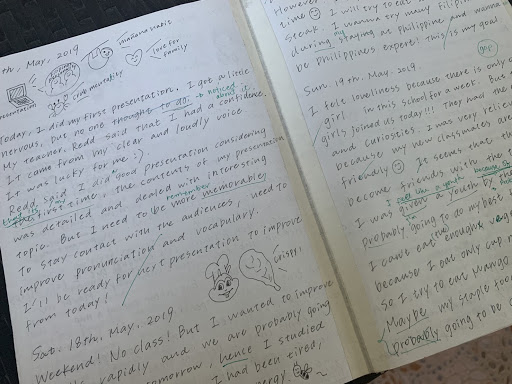 th, May, 2019
mañana habit
love for family
crab mentality
presentation
Today, I did my first presentation. I got a little
nervous, but no one thought to do. → noticed about it
My teacher, Redd said that I had a confidence.
It came from my clear and loudly voice.
It was lucky for me :)
Redd said I did good presentation considering
first time. the contents of my presentation
was detailed and dealed with interesting
remember
topic. But I need to be more memorable
to stay contact with the audiences, need to
improve pronunciation and vocabulary.
I'll be ready for next presentation to improve
from today!
crispy!
Sat. 18th, May, 2019
Weekend! No class! But I wanted to improve
rapidly and we are probably going
tomorrow, hence I studied
I had been tired,
However
time I will try to eat
seeak. I wanna try many Filipino
during my staying at Philippine and wanna
be Philippines expert! This is my goal
Sun. 19th. May. 2019.
I felt loneliness because there is only
girl in this school for a week. But
girls joined us today!!! They had the
and curiosities. I was very relieved
because my new classmates are
friendly It seems that
become friends with the
I feel like a youth because
I was given a youth by the
probably going to do my best
I can't eat enough veg
because I eat only cup n
So I try to eat Mango
Maybe my staple food
probably going to be